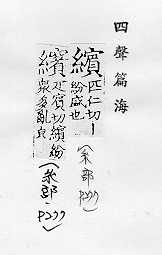 四聲篇海
繽匹仁切丨
紛盛也
(糸部
P277)
繽疋賓切繽紛
衆多亂皃
(糸部
P277)